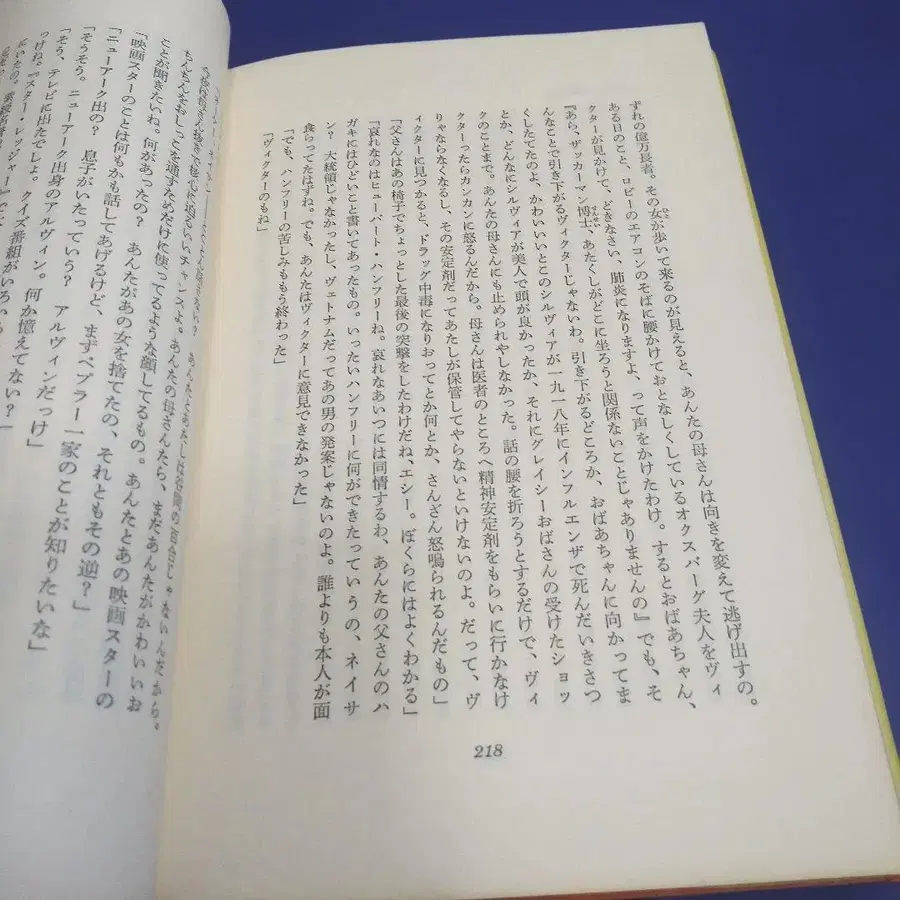 ずれの億万長者。その女が歩いて来るのが見えると、あんたの母さんは向きを変えて逃げ出すの。
ある日のこと、ロビーのエアコンのそばに腰かけておとなしくしているオクスバーグ夫人をヴィ
クターが見かけて、どきなさい、肺炎になりますよ、って声をかけたわけ。するとおばあちゃん、
『あら、ザッカーマン博士、あたくしがどこに坐ろうと関係ないことじゃありませんの』でも、そ
んなことで引き下がるヴィクターじゃないわ。引き下がるどころか、おばあちゃんに向かってま
くしたてたのよ、かわいいいとこのシルヴィアが一九一八年にインフルエンザで死んだいきさつ
とか、どんなにシルヴィアが美人で頭が良かったか、それにグレイシーおばさんの受けたショッ
クのことまで。あんたの母さんにも止められやしなかった。話の腰を折ろうとするだけで、ヴィ
クターったらカンカンに怒るんだから。母さんは医者のところへ精神安定剤をもらいに行かなけ
りゃならなくなるし、その安定剤だってあたしが保管してやらないといけないのよ。だって、ヴ
ィクターに見つかると、ドラッグ中毒になりおってとか何とか、さんざん怒鳴られるんだもの」
「父さんはあの椅子でちょっとした最後の突撃をしたわけだね、エシー。ぼくらにはよくわかる」
「哀れなのはヒューバート・ハンフリーね。哀れなあいつには同情するわ、あんたの父さんのハ
ガキにはひどいこと書いてあったもの。いったいハンフリーに何ができたっていうの、ネイサ
ン? 大統領じゃなかったし、ヴェトナムだってあの男の発案じゃないのよ。誰よりも本人が面
食らってたはずね。でも、あんたはヴィクターに意見できなかった」
「でも、ハンフリーの苦しみももう終わった」
「ヴィクターのもね」
218
ちんちんをおしっこを通すためだけに使ってるような顔してるもの。あんたとあの映画スターの
ことが聞きたいね。何があったの? あんたがあの女を捨てたの、それともその逆?」
「映画スターのことは何もかも話してあげるけど、まずペプラー一家のことが知りたいな」
「ニューアーク出の? 息子がいたっていう? アルヴィンだっけ」
「そうそう。ニューアーク出身のアルヴィン。何か憶えてない?」
「そう、テレビに出たでしょ。クイズ番組がいろいろ
っけね。『スター・レッジャー』